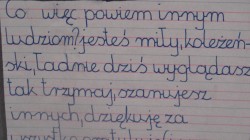 Co więc powiem innym
ludziom? jesteś miły, koleżeń-
ski, ładnie dziś wyglądasz
tak trzymaj, szanujesz
innych, dziękuję za